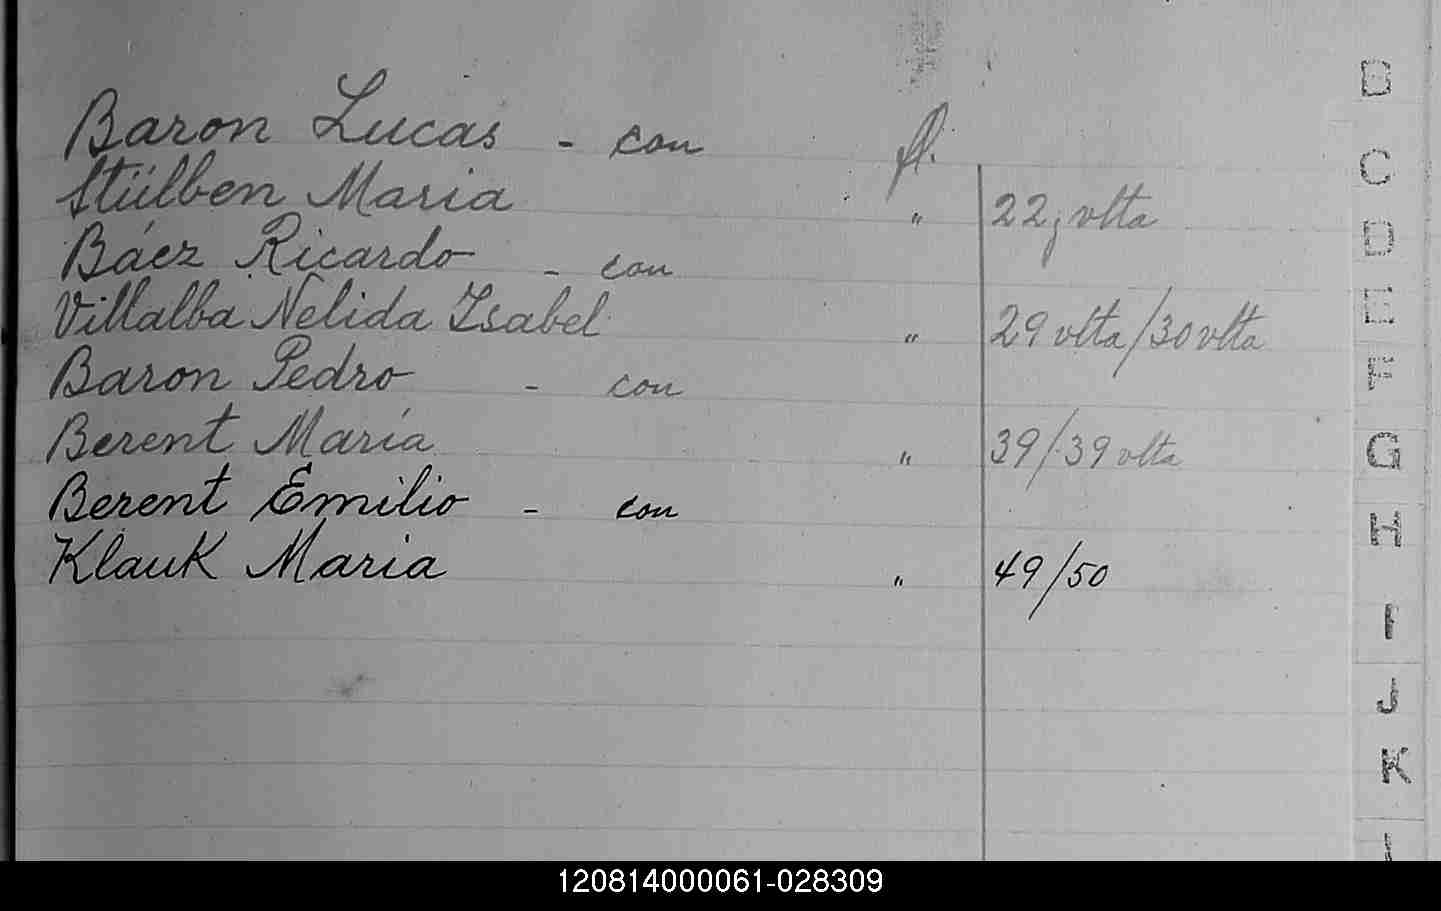 Baron Lucas - con fl.
Stülben Maria " 22, vlta
Báez Ricardo - con
Villalba Nelida Isabel " 29 vlta/30 vlta
Baron Pedro - con
Berent María " 39/39 vlta
Berent Emilio - con
Klauk Maria " 49/50
B
C
D
E
F
G
H
I
J
K
L
120814000061-028309